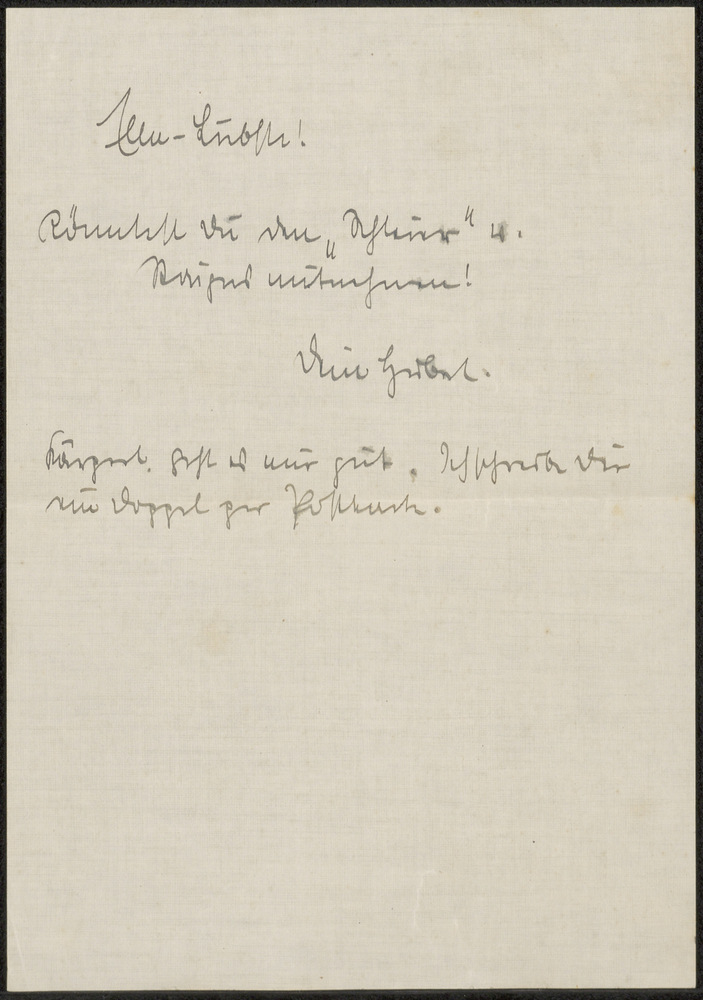 Ella-Liebste!
Könntest Du den „Schleier" u.
mitnehmen!
Dein Hubert.
Körperl. geht es mir gut. Ich schreibe Dir
ein Doppel per Postkarte.